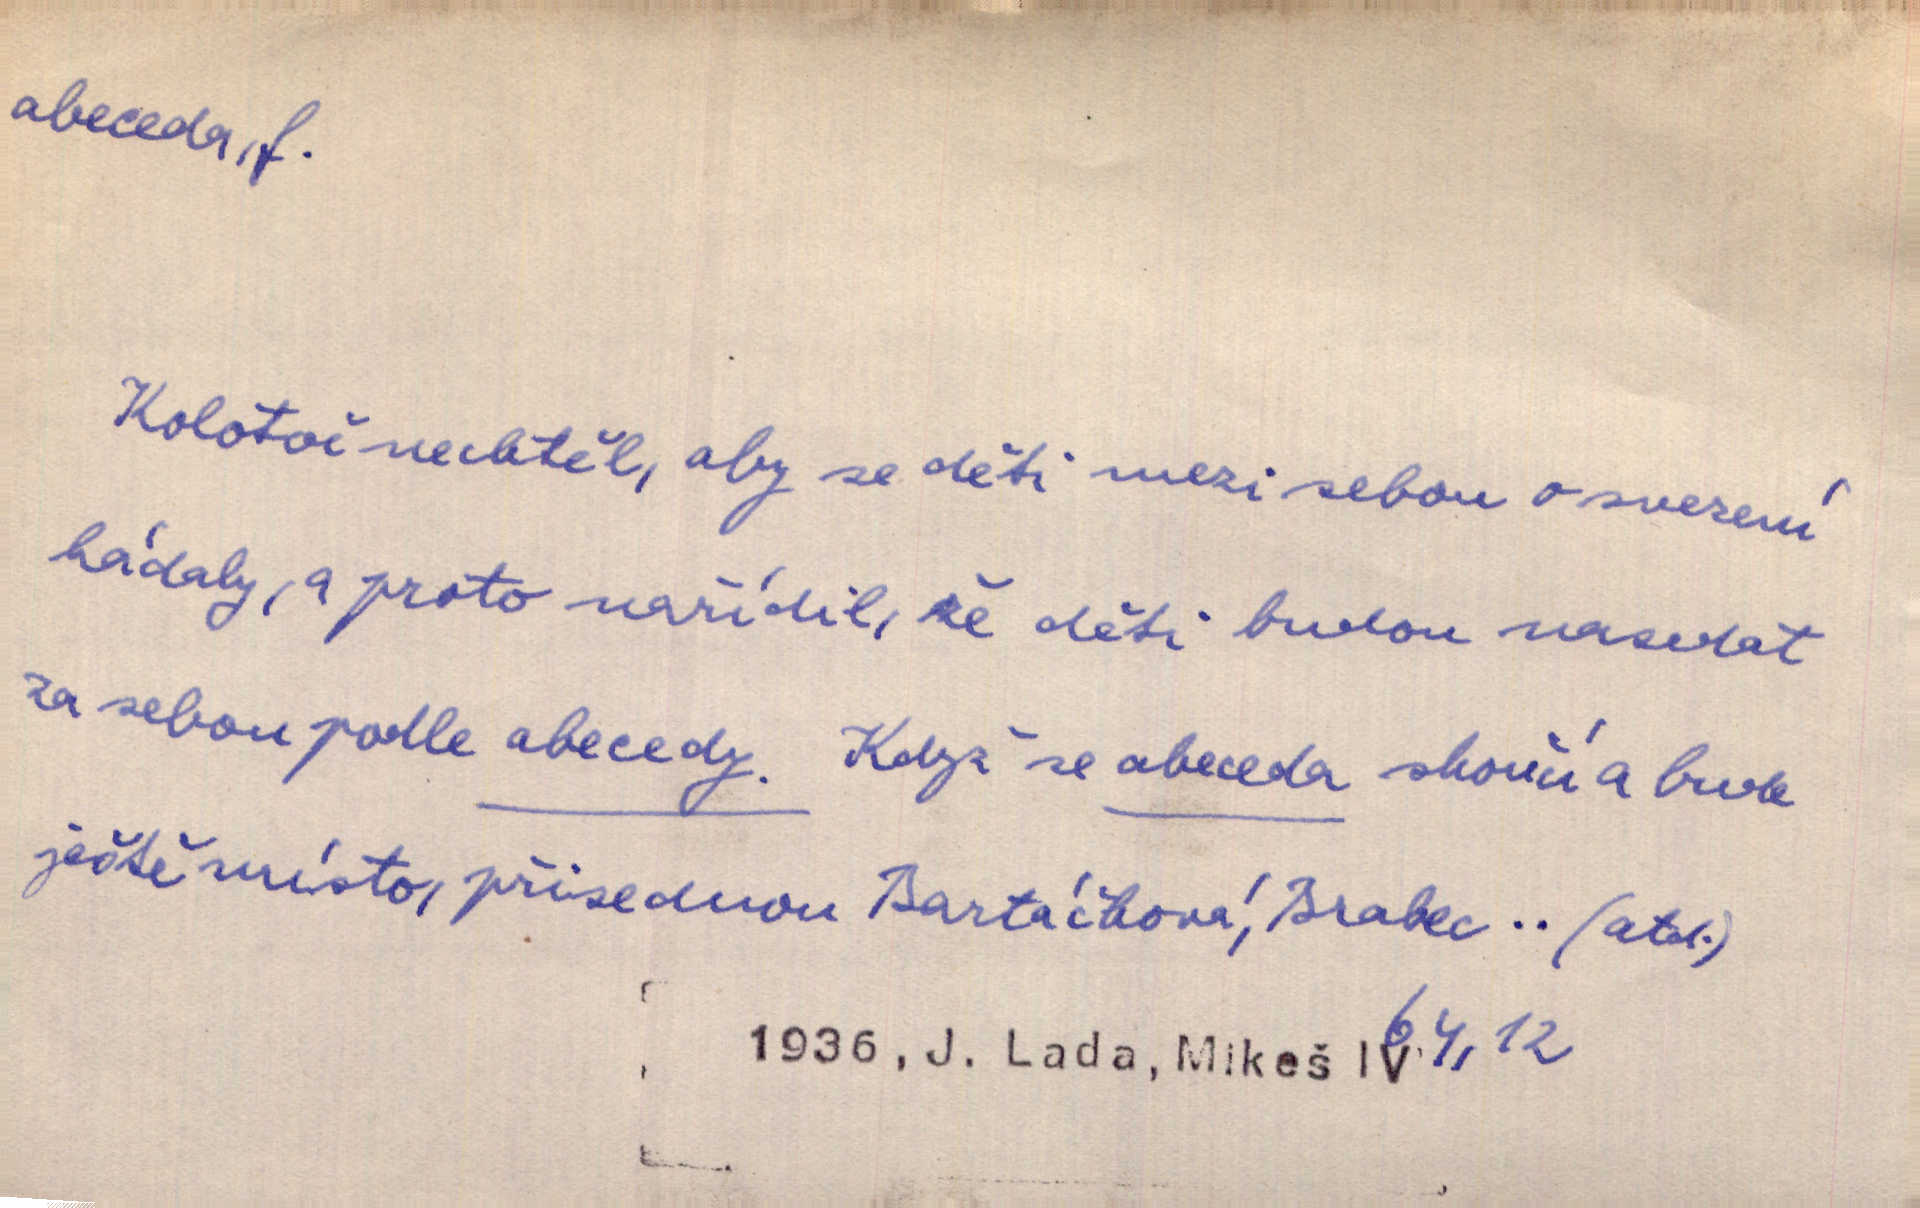 abeceda, f.
Kolotoč nechtěl, aby se děti mezi sebou o svezení
hádaly, a proto nařídil, že děti budou nasedat
za sebou podle abecedy. Když se abeceda skončí a bude
ještě místo, přisednou Bartáčková, Brabec .. (atd.)
1936, J. Lada, Mikeš IV 64, 12